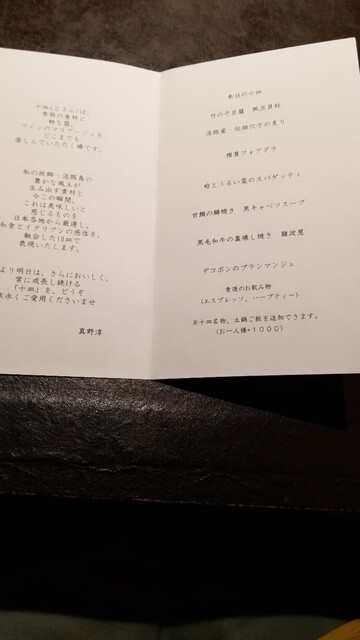 十皿(とさら)は、
季節の素材と
粋な器、
ワインのマリアージュを
どこまでも
楽しんでいただく場です。
私の故郷・淡路島の
豊かな風土が
生み出す素材と
今この瞬間、
これは美味しいと
感じるものを
日本各地から厳選し、
和食とイタリアンの感性を、
融合した10皿で
表現いたします。
より明日は、さらにおいしく。
常に成長し続ける
「十皿」を、どうぞ
末永くご愛用くださいませ
真野淳
本日の十皿
竹の子豆腐 帆立貝柱
淡路産・伝助穴子の炙り
惣實フォアグラ
蛤とうるい菜のスパゲッティ
甘鯛の鱗焼き 黒キャベツスープ
黒毛和牛の藁燻し焼き 難波葱
デコポンのブランマンジェ
食後のお飲み物
(エスプレッソ、ハーブティー)
※十皿名物、土鍋ご飯を追加できます。
(お一人様+1000)